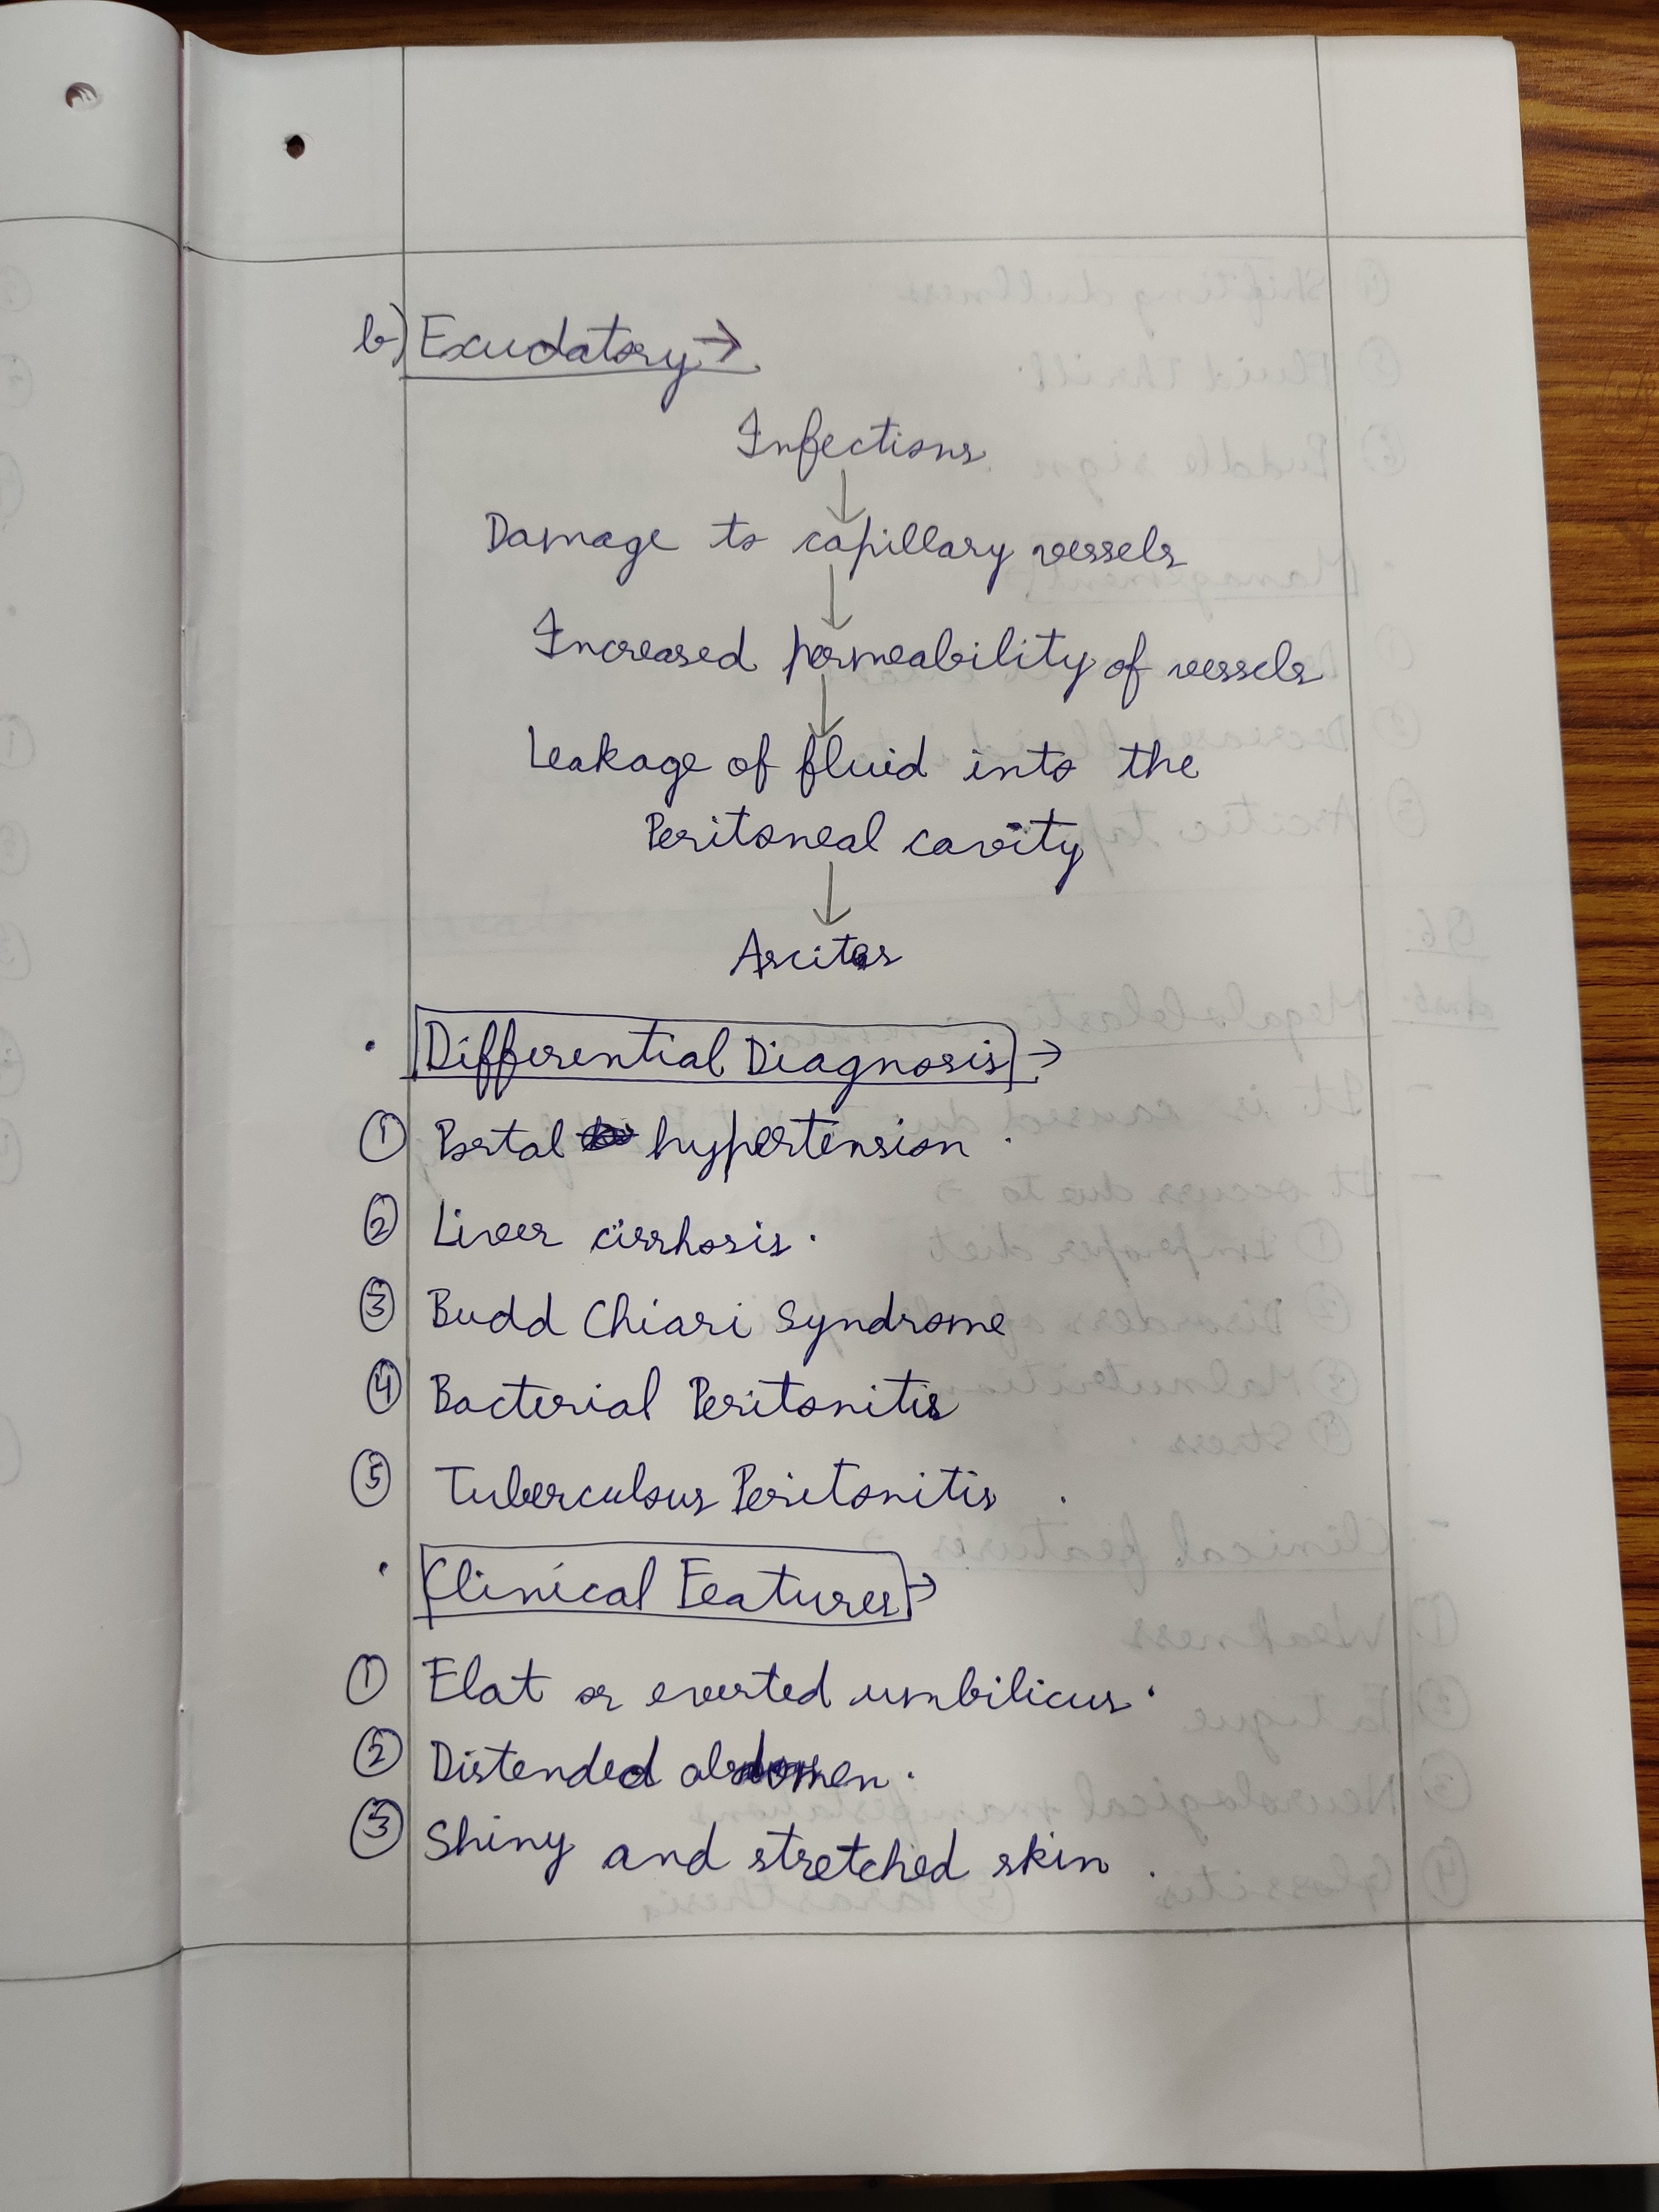 b) Exudatory →
Infections
↓
Damage to capillary vessels
↓
Increased permeability of vessels
↓
Leakage of fluid into the
Peritoneal cavity
↓
Ascites
• Differential Diagnosis →
① Portal hypertension.
② Liver cirrhosis.
③ Budd Chiari Syndrome
④ Bacterial Peritonitis
⑤ Tuberculous Peritonitis.
• Clinical Features →
① Flat or everted umbilicus.
② Distended abdomen.
③ Shiny and stretched skin.